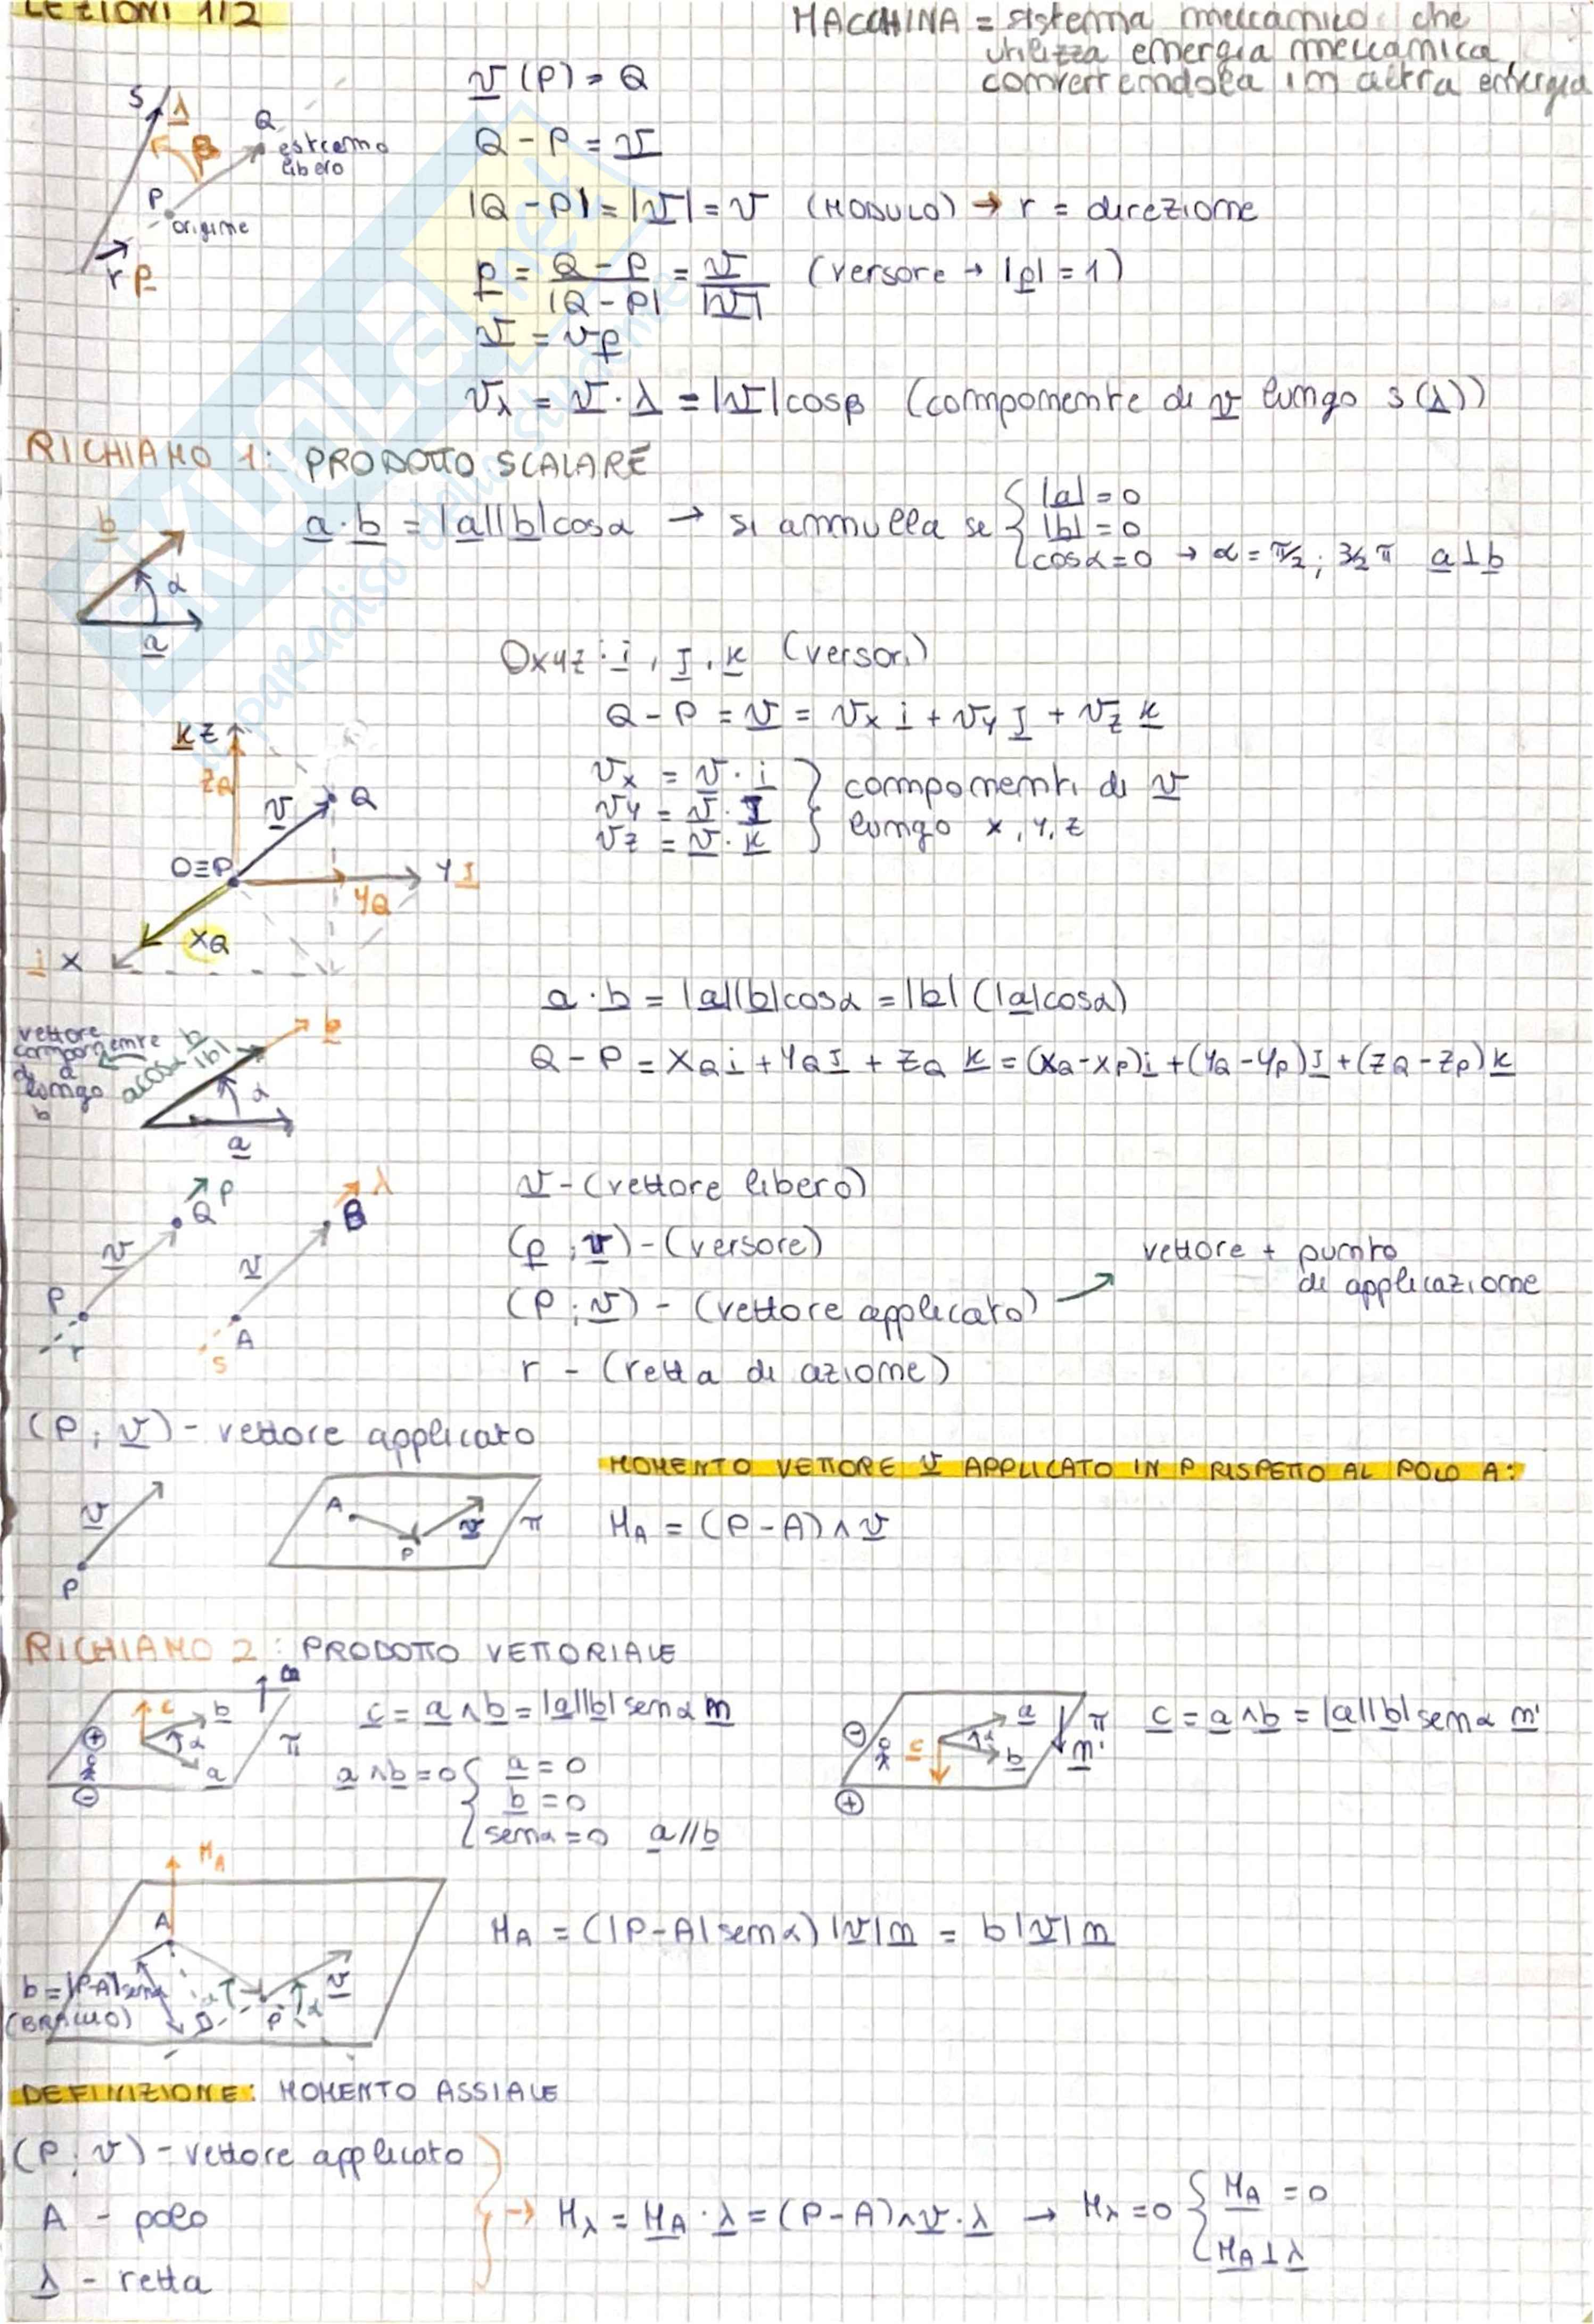 LEZIONI 1/2
MACCHINA = sistema meccanico che
utilizza energia meccanica,
convertendola in altra energia
S λ β Q estremo
libero
P origine
r ρ
v (P) = Q
Q - P = v
|Q - P| = |v| = v (MODULO) → r = direzione
ρ = Q - P / |Q - P| = v / |v| (versore → |ρ| = 1)
v = vρ
vλ = v · λ = |v| cosβ (componente di v lungo s (λ))
RICHIAMO 1: PRODOTTO SCALARE
b α a
a · b = |a||b| cosα → si annulla se { |a| = 0
|b| = 0
cosα = 0 → α = π/2 ; 3/2 π a ⊥ b
Oxyz : i , J , k (versori)
Q - P = v = vx i + vy J + vz k
vx = v · i
vy = v · J
vz = v · k
} componenti di v
lungo x, y, z
k z
zQ
v Q
O≡P y J
yQ
xQ
i x
a · b = |a||b| cosα = |b| (|a| cosα)
Q - P = xQ i + yQ J + zQ k = (xQ - xP) i + (yQ - yP) J + (zQ - zP) k
vettore
componente
di a
lungo
b
a cosα b/|b|
b α a
Q ρ v P r
B λ v A s
v - (vettore libero)
(ρ ; v) - (versore)
(P ; v) - (vettore applicato) → vettore + punto
di applicazione
r - (retta di azione)
(P ; v) - vettore applicato
v P
A P v π
MOMENTO VETTORE v APPLICATO IN P RISPETTO AL POLO A:
MA = (P - A) ∧ v
RICHIAMO 2: PRODOTTO VETTORIALE
+ - c b α a π n
c = a ∧ b = |a||b| sen α n
a ∧ b = 0 { a = 0
b = 0
senα = 0 a // b
- + c a α b π n'
c = a ∧ b = |a||b| sen α n'
MA
A
b = |P-A| senα
(BRACCIO)
α P α v
MA = (|P - A| sen α) |v| n = b |v| n
DEFINIZIONE: MOMENTO ASSIALE
(P ; v) - vettore applicato
A - polo
λ - retta
→ Mλ = MA · λ = (P - A) ∧ v · λ → Mλ = 0 { MA = 0
MA ⊥ λ
SKUOLA.net
il paradiso dello studente